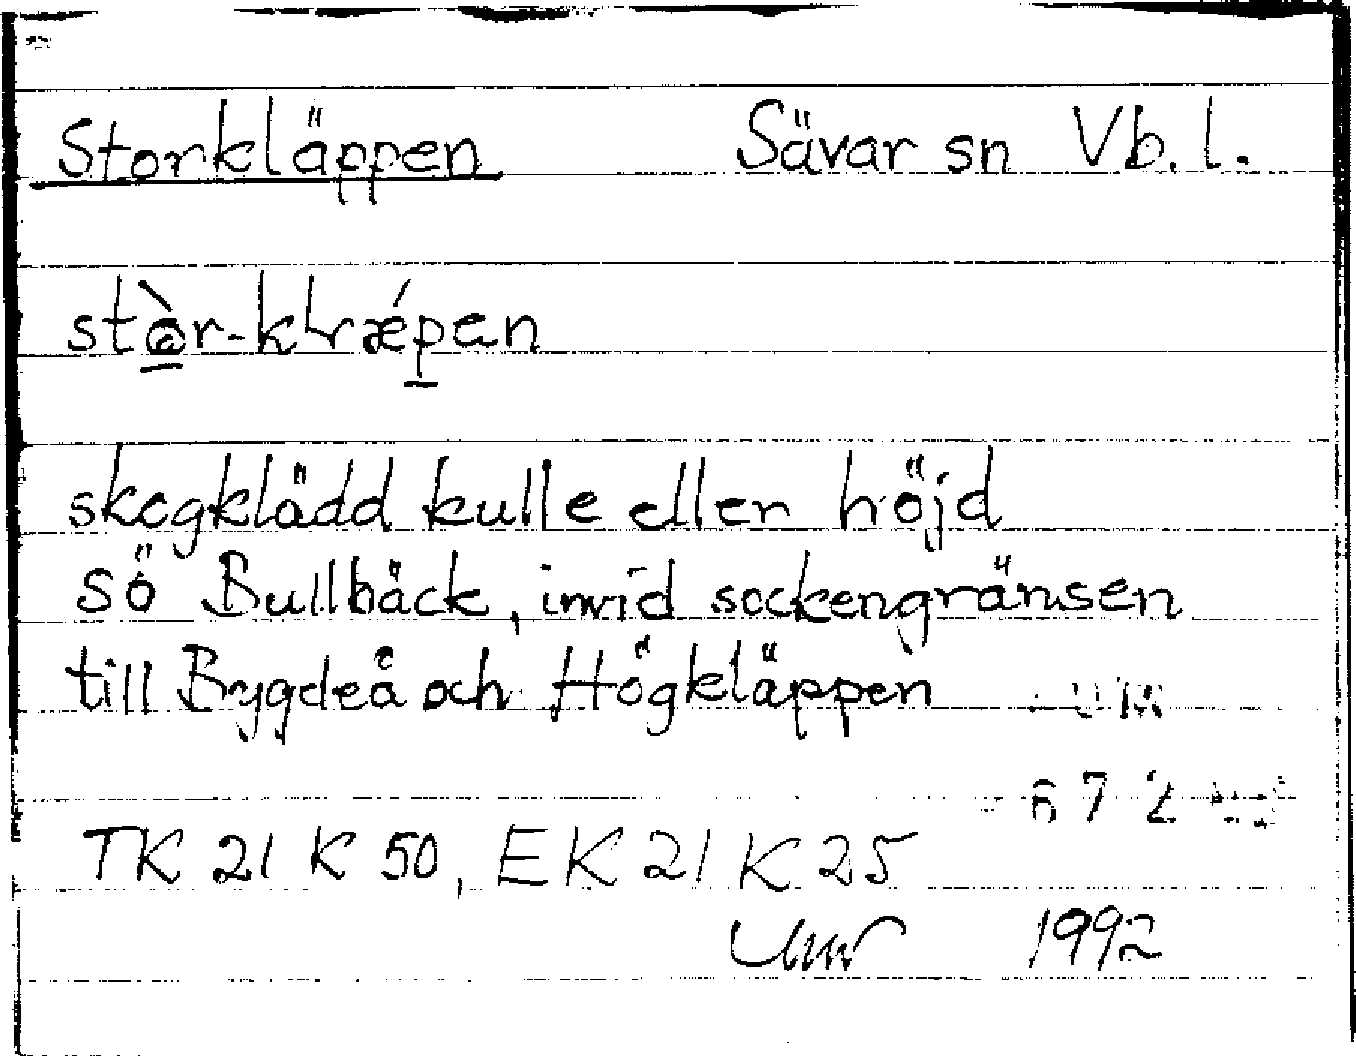 Storkläppen Sävar sn Vb. l.
skogklädd kulle eller höjd
sö Bullbäck, invid sockengränsen
till Bygdeå och Högkläppen
672
TK 21 K 50, EK 21 K 25
1992